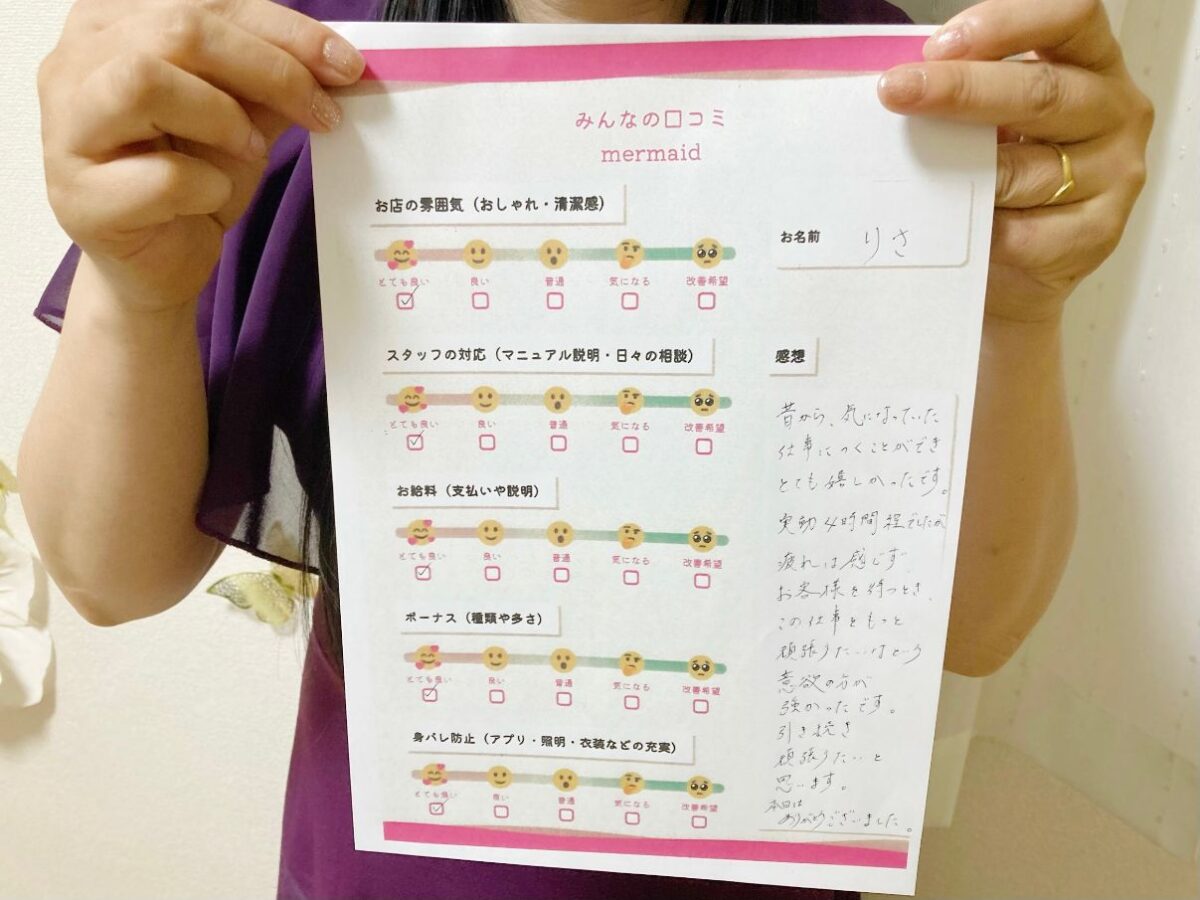 みんなの口コミ
mermaid
お店の雰囲気（おしゃれ・清潔感）
とても良い 良い 普通 気になる 改善希望
スタッフの対応（マニュアル説明・日々の相談）
とても良い 良い 普通 気になる 改善希望
お給料（支払いや説明）
とても良い 良い 普通 気になる 改善希望
ボーナス（種類や多さ）
とても良い 良い 普通 気になる 改善希望
身バレ防止（アプリ・照明・衣装などの充実）
とても良い 良い 普通 気になる 改善希望
お名前 りさ
感想
昔から、気になっていた
仕事につくことができ
とても嬉しかったです。
実働4時間程でしたが
疲れは感じず
お客様を待つとき、
この仕事をもっと
頑張りたいなという
意欲の方が
強かったです。
引き続き
頑張りたいと
思います。
本日は
ありがとうございました。